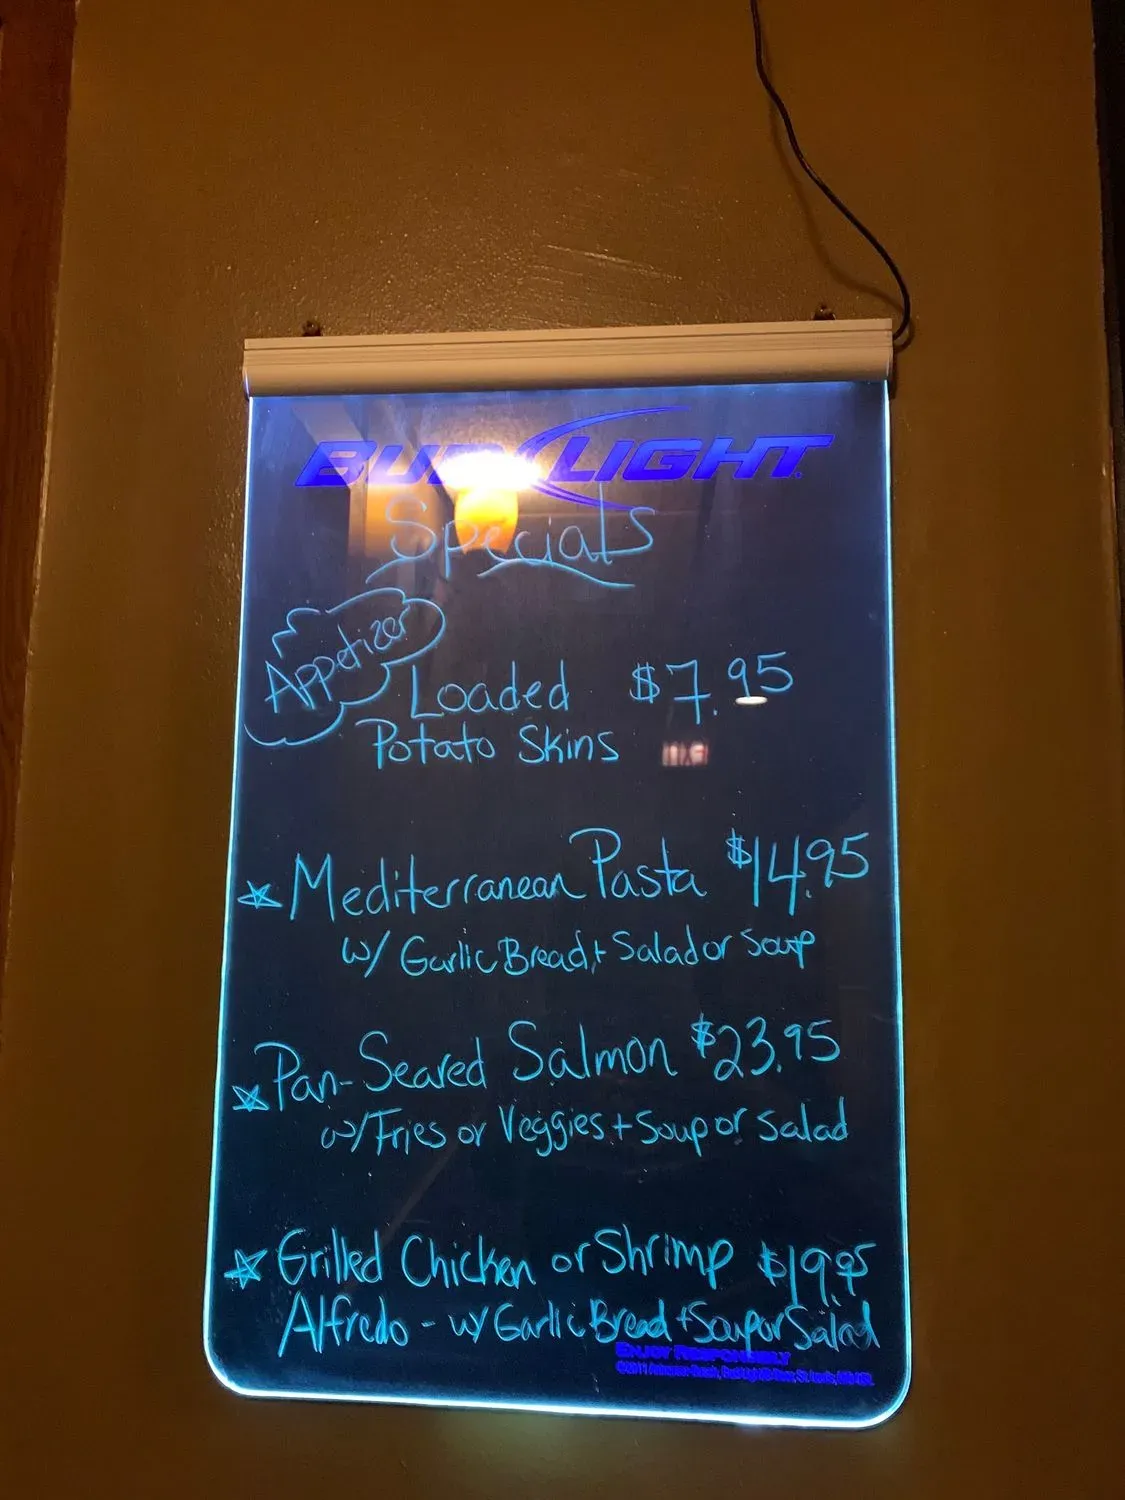 BUD LIGHT
Specials
Appetizer
Loaded $7.95
Potato Skins
Mediterranean Pasta $14.95
w/ Garlic Bread + Salad or Soup
Pan-Seared Salmon $23.95
w/ Fries or Veggies + Soup or Salad
Grilled Chicken or Shrimp $19.95
Alfredo - w/ Garlic Bread + Soup or Salad
ENJOY RESPONSIBLY
©2011 Anheuser-Busch, Bud Light® Beer, St. Louis, MO